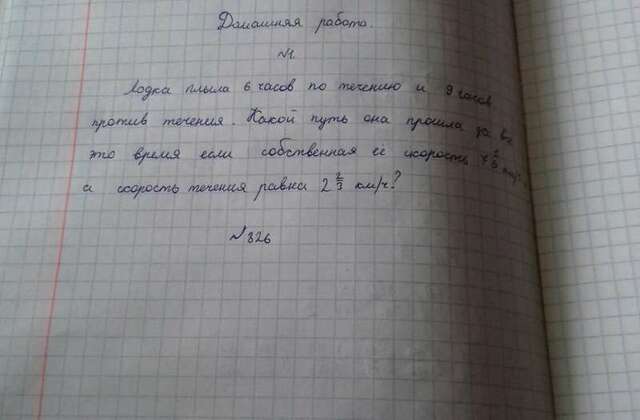 Домашняя работа.
№1.
Лодка плыла 6 часов по течению и 9 часов
против течения. Какой путь она прошла за
это время если собственная её скорость
а скорость течения равна 2 2/3 км/ч?
№326